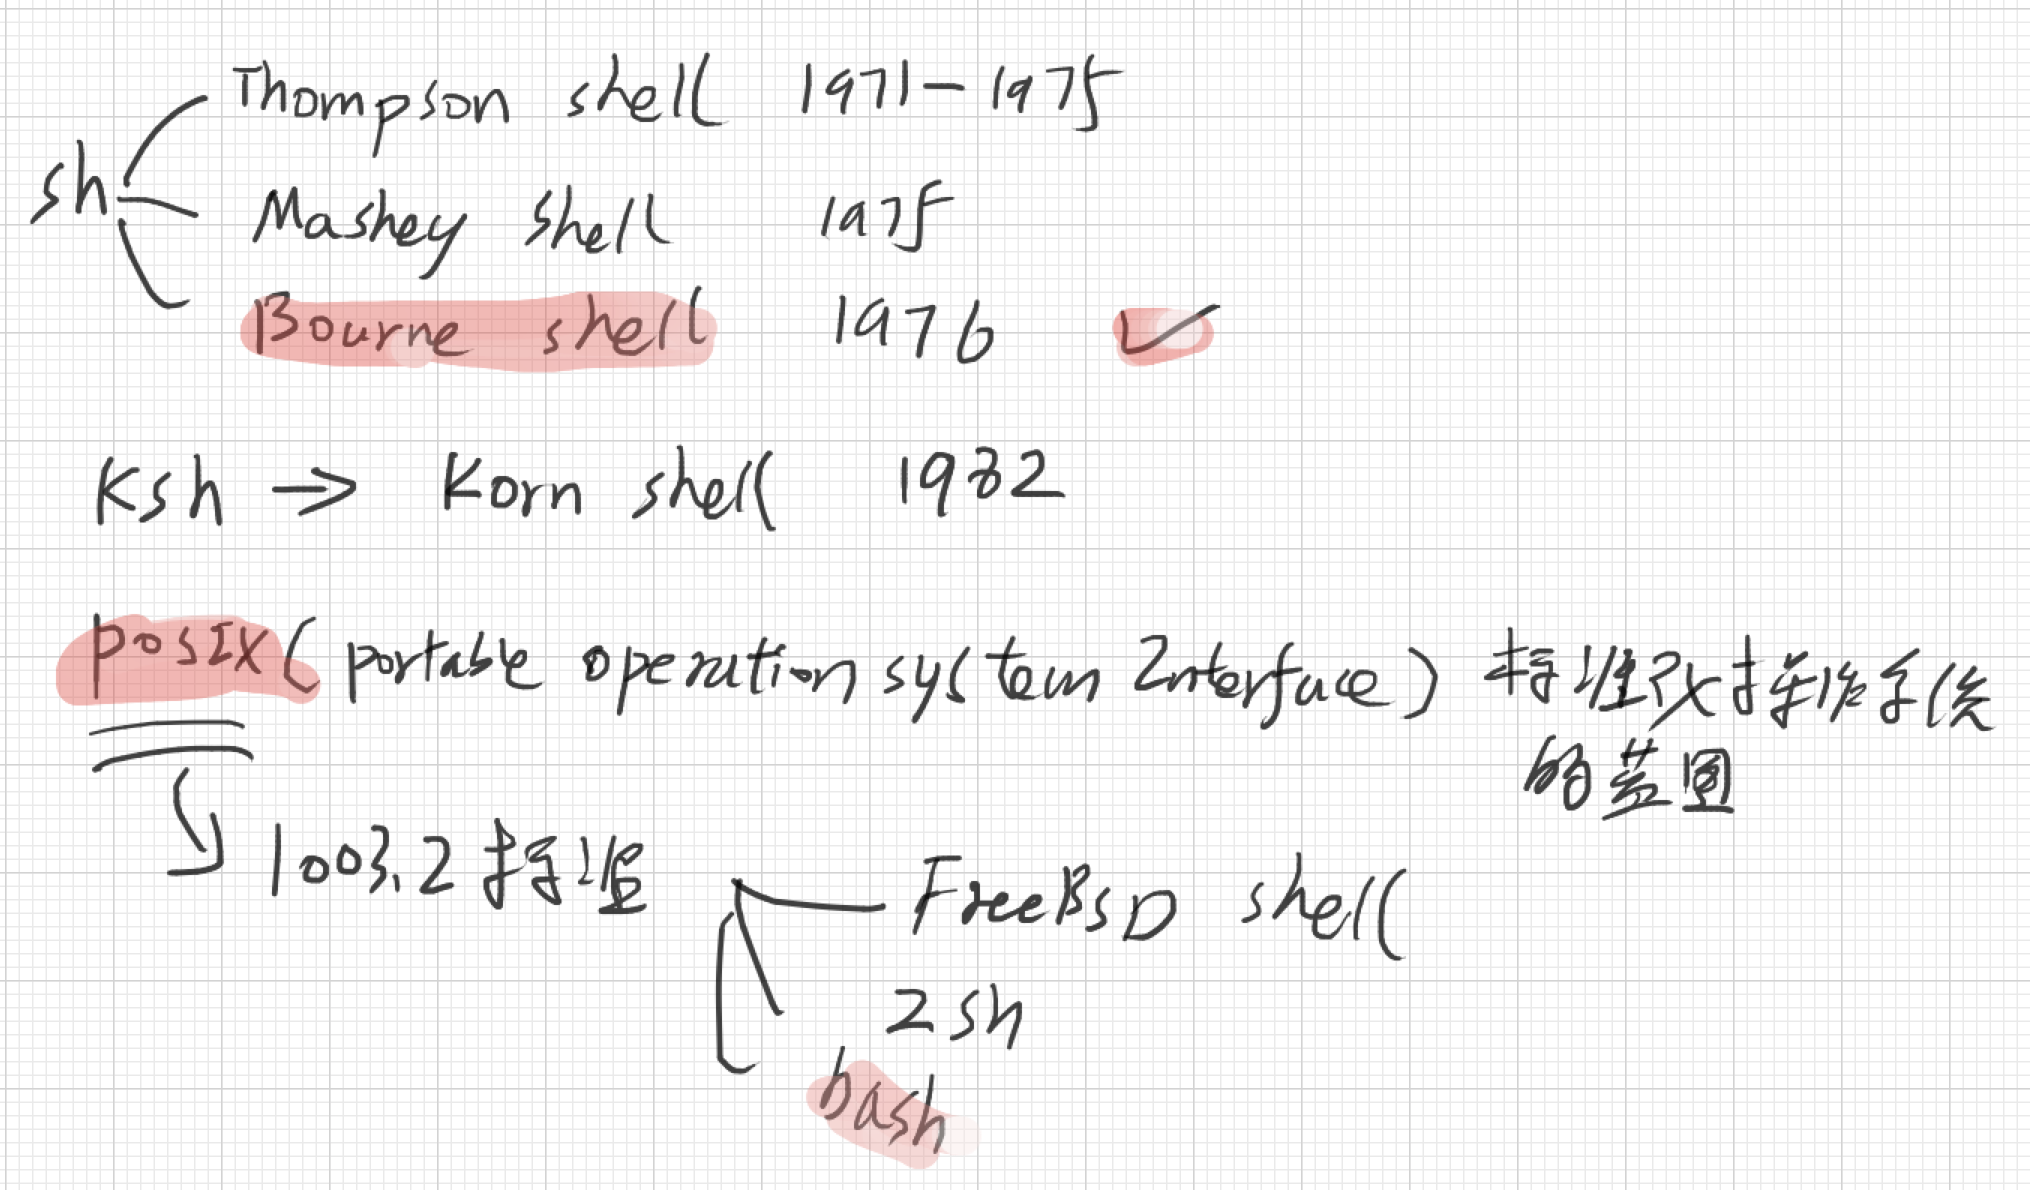 sh
Thompson shell 1971-1975
Mashey shell 1975
Bourne shell 1976
Ksh → Korn shell 1982
POSIX (portable operation system Interface) 标准化操作系统
的蓝图
1003.2 标准
FreeBSD shell
zsh
bash